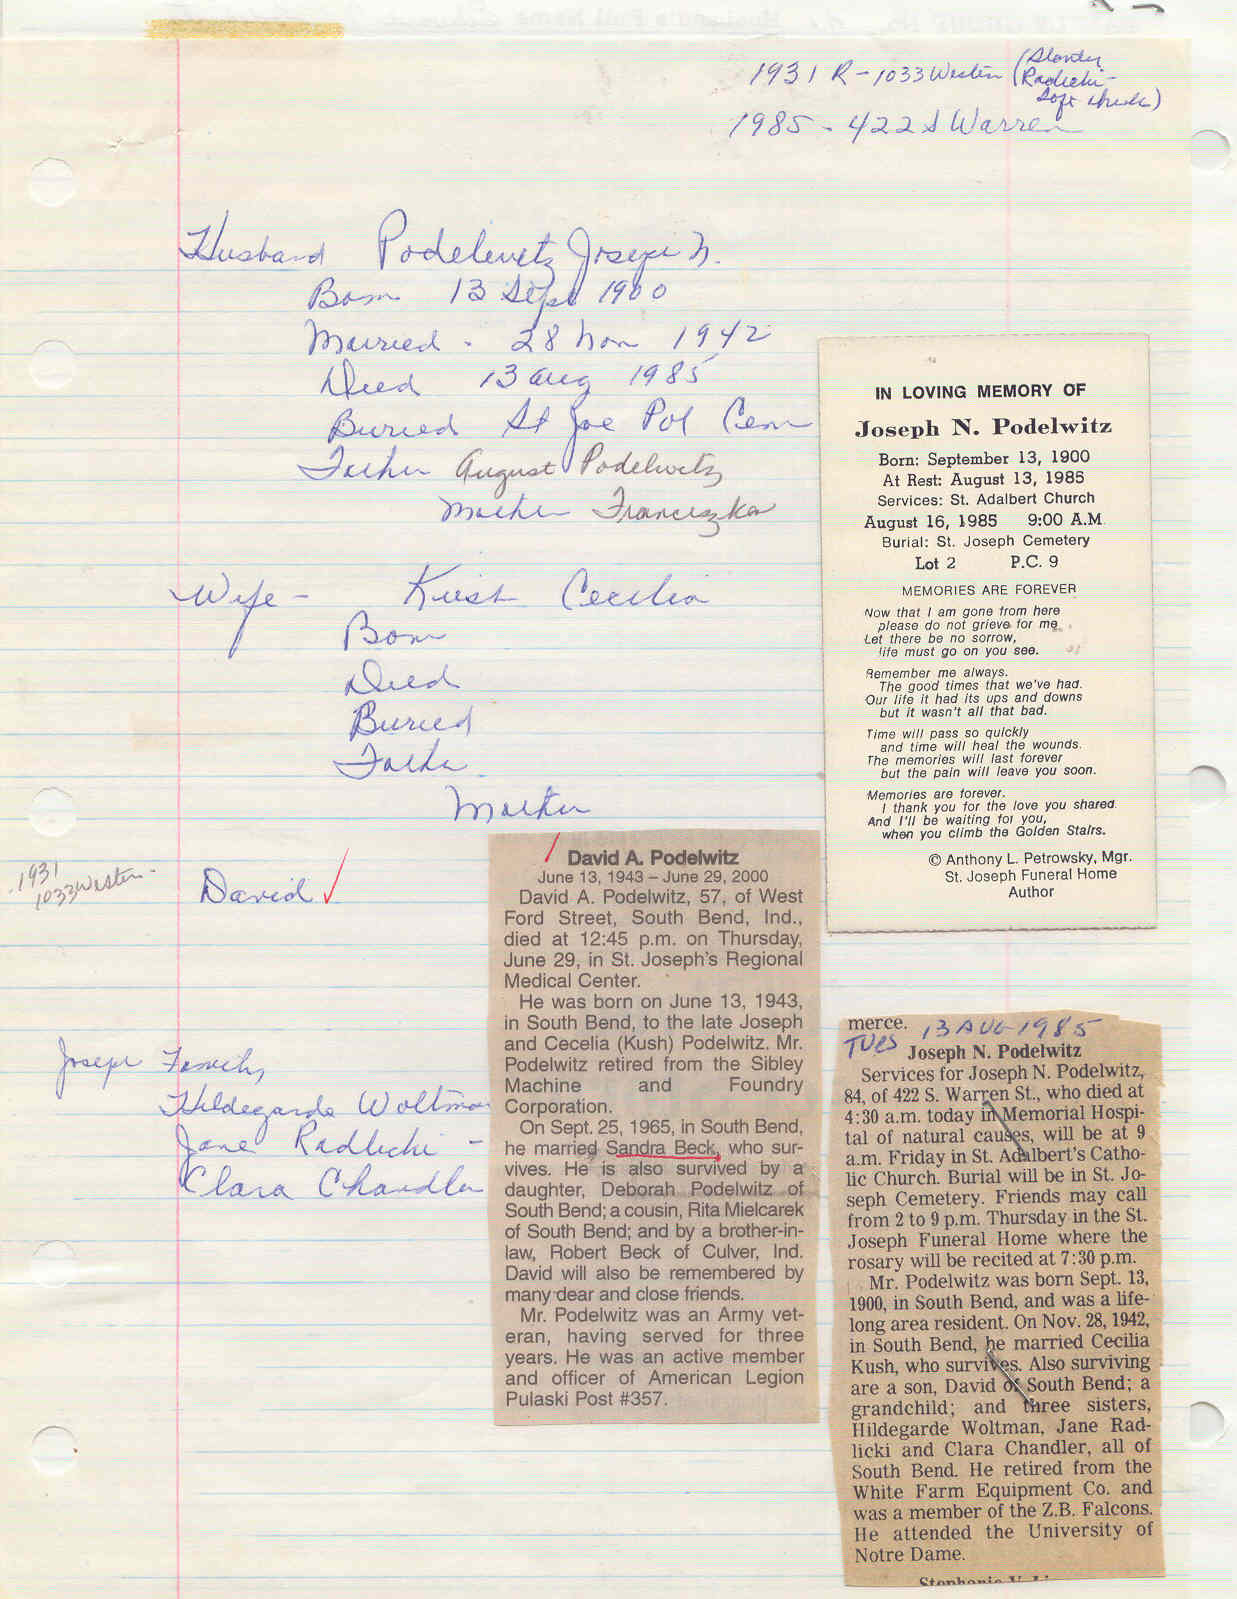 1931 R - 1033 Westen (Stanley
(Radlicki -
Soft drinks)
1985 - 422 S Warren
Husband Podelewitz Joseph N.
Born 13 Sept 1900
Married - 28 Nov 1942
Died 13 Aug 1985
Buried St Joe Pol Cem
Father August Podelwitz
Mother Franciszka
Wife - Kush Cecilia
Born
Died
Buried
Father
Mother
1931
1033 Westen -
David ✓
Joseph Family
Hildegarde Woltman
Jane Radlicki -
Clara Chandler
IN LOVING MEMORY OF
Joseph N. Podelwitz
Born: September 13, 1900
At Rest: August 13, 1985
Services: St. Adalbert Church
August 16, 1985 9:00 A.M.
Burial: St. Joseph Cemetery
Lot 2 P.C. 9
MEMORIES ARE FOREVER
Now that I am gone from here
please do not grieve for me.
Let there be no sorrow,
life must go on you see.
Remember me always.
The good times that we've had.
Our life it had its ups and downs
but it wasn't all that bad.
Time will pass so quickly
and time will heal the wounds.
The memories will last forever
but the pain will leave you soon.
Memories are forever.
I thank you for the love you shared.
And I'll be waiting for you,
when you climb the Golden Stairs.
© Anthony L. Petrowsky, Mgr.
St. Joseph Funeral Home
Author
David A. Podelwitz
June 13, 1943 – June 29, 2000
David A. Podelwitz, 57, of West
Ford Street, South Bend, Ind.,
died at 12:45 p.m. on Thursday,
June 29, in St. Joseph's Regional
Medical Center.
He was born on June 13, 1943,
in South Bend, to the late Joseph
and Cecelia (Kush) Podelwitz. Mr.
Podelwitz retired from the Sibley
Machine and Foundry
Corporation.
On Sept. 25, 1965, in South Bend,
he married Sandra Beck, who sur-
vives. He is also survived by a
daughter, Deborah Podelwitz of
South Bend; a cousin, Rita Mielcarek
of South Bend; and by a brother-in-
law, Robert Beck of Culver, Ind.
David will also be remembered by
many dear and close friends.
Mr. Podelwitz was an Army vet-
eran, having served for three
years. He was an active member
and officer of American Legion
Pulaski Post #357.
merce. 13 AUG 1985
TUES Joseph N. Podelwitz
Services for Joseph N. Podelwitz,
84, of 422 S. Warren St., who died at
4:30 a.m. today in Memorial Hospi-
tal of natural causes, will be at 9
a.m. Friday in St. Adalbert's Catho-
lic Church. Burial will be in St. Jo-
seph Cemetery. Friends may call
from 2 to 9 p.m. Thursday in the St.
Joseph Funeral Home where the
rosary will be recited at 7:30 p.m.
Mr. Podelwitz was born Sept. 13,
1900, in South Bend, and was a life-
long area resident. On Nov. 28, 1942,
in South Bend, he married Cecilia
Kush, who survives. Also surviving
are a son, David of South Bend; a
grandchild; and three sisters,
Hildegarde Woltman, Jane Rad-
licki and Clara Chandler, all of
South Bend. He retired from the
White Farm Equipment Co. and
was a member of the Z.B. Falcons.
He attended the University of
Notre Dame.